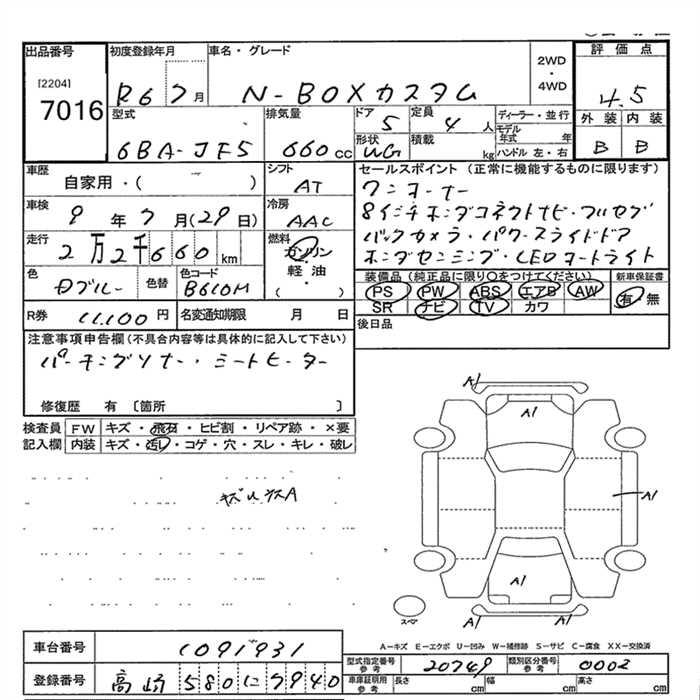 出品番号 初度登録年月 車名・グレード 2WD・4WD 評価点
[2204]
7016 R6 7月 N-BOXカスタム 4.5
型式 排気量 ドア 5 定員 4人 ディーラー・並行 外装 内装
6BA-JF5 660cc 形状 WG 積載 kg モデル年式 年 ハンドル 左・右 B B
車歴 自家用・( ) シフト AT セールスポイント (正常に機能するものに限ります)
車検 9年7月(29日) 冷房 AAC ワンオーナー
走行 2万2千660km 燃料 ガソリン・軽油・( ) 8インチホンダコネクトナビ・フルセグ
バックカメラ・パワースライドドア
ホンダセンシング・LEDオートライト
色 Dブルー 色替 色コード B610M
装備品 (純正品に限り○をつけてください) 新車保証書
PS PW ABS エアB AW 有・無
SR ナビ TV カワ
R券 11,100円 名変通知期限 月 日 後日品
注意事項申告欄 (不具合内容等は具体的に記入して下さい)
パーキングソナー・シートヒーター
修復歴 有 〔箇所 〕
検査員 FW キズ・飛石・ヒビ割・リペア跡・×要
記入欄 内装 キズ・汚レ・コゲ・穴・スレ・キレ・破レ
A1
A1
A1
A1
A1
スペア
A-キズ E-エクボ U-凹み W-補修跡 S-サビ C-腐食 XX-交換済
車台番号 1091931
型式指定番号 参考 20749 類別区分番号 参考 0002
登録番号 高崎 580 に 7940
車庫証明用 参考 長さ cm 幅 cm 高さ cm